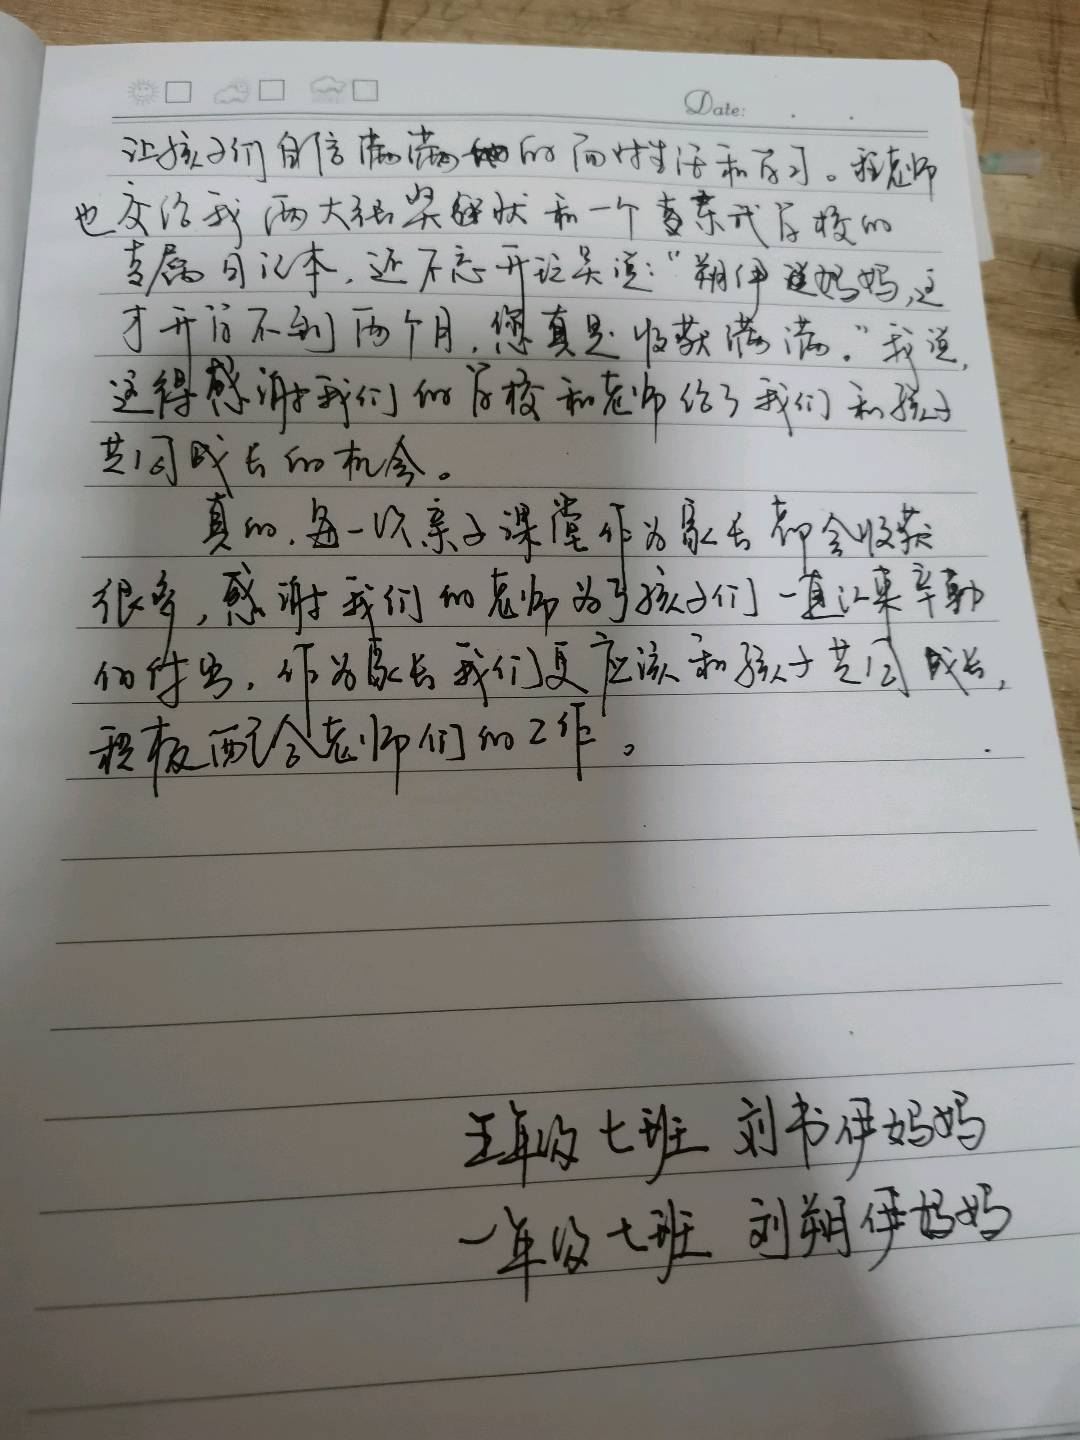 Date:
让孩子们自信满满的面对生活和学习。程老师
也交给我两大张奖状和一个 学校的
专属日记本,还不忘开玩笑说:“朔伊妈妈,这
才开学不到两个月,您真是收获满满。”我说,
这得感谢我们的学校和老师给了我们和孩子
共同成长的机会。
真的,每一次亲子课堂作为家长都会收获
很多,感谢我们的老师为了孩子们一直以来辛勤
的付出,作为家长我们更应该和孩子共同成长,
积极配合老师们的工作。
五年级七班 刘书伊妈妈
一年级七班 刘朔伊妈妈